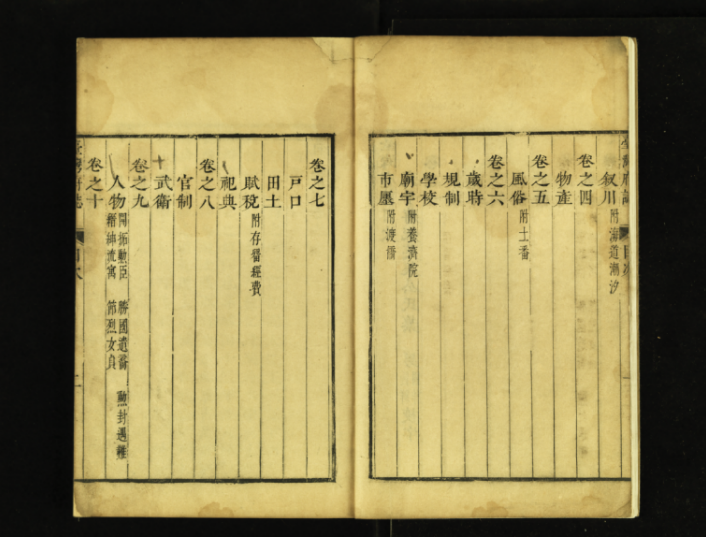 叙川附海道潮汐
卷之四
物產
卷之五
風俗附土番
卷之六
歲時
規制
學校
廟宇附養濟院
市廛附渡橋
卷之七
戶口
田土
賦稅附存留經費
祀典
卷之八
官制
武衛
卷之九
人物開拓勳臣 勝國遺裔 勳封遇難
縉紳流寓 節烈女貞
卷之十
臺灣府志 目次 二